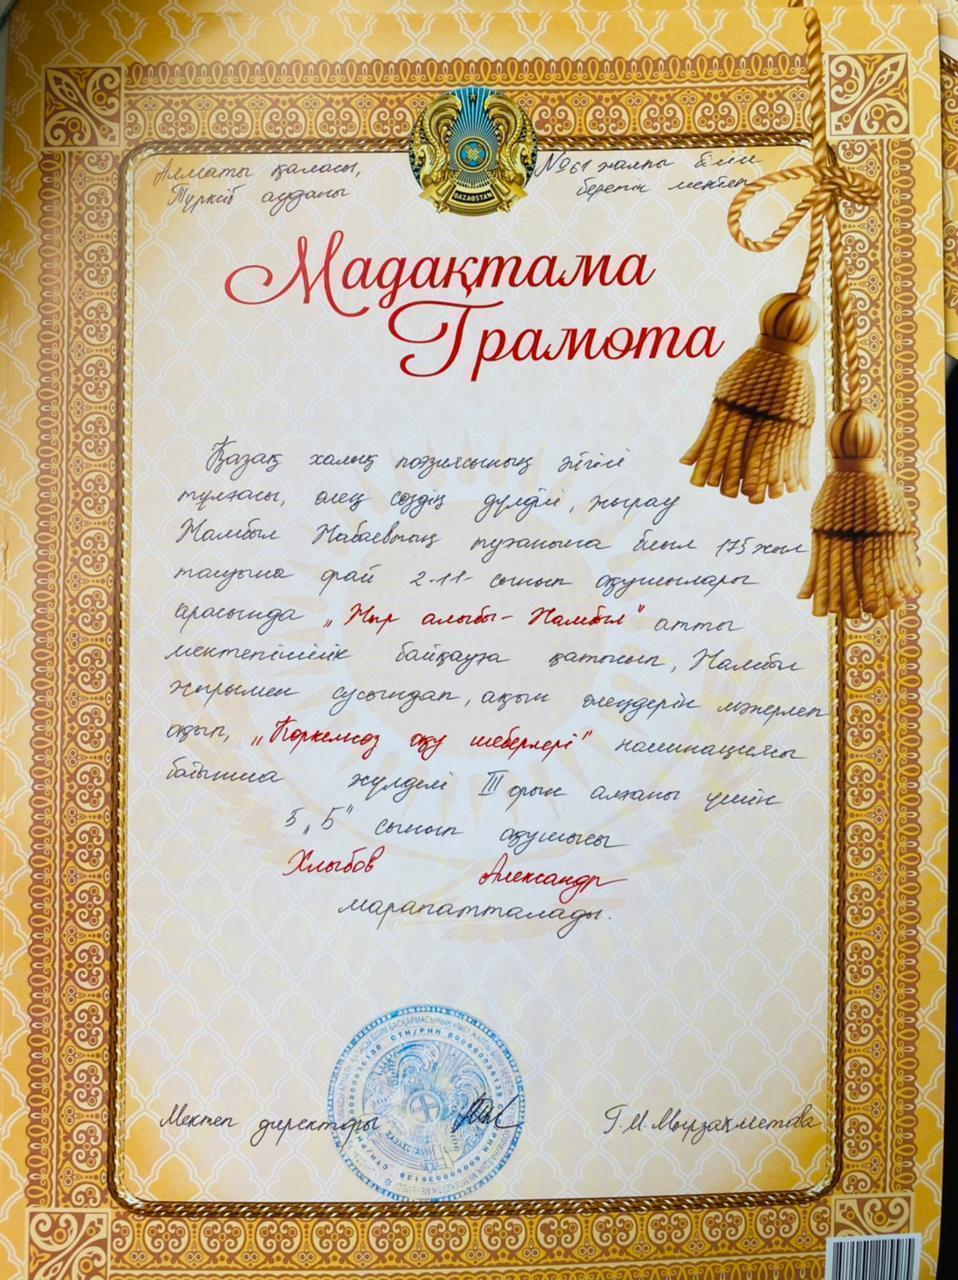 Алматы қаласы,
Түрксіб ауданы
№961 жалпы білім
беретін мектеп
QAZAQSTAN
Мадақтама
Грамота
Қазақ халық поэзиясының әйгілі
тұлғасы, өлең сөздің дүлділі, жырау
Жамбыл Жабаевтың туғанына биыл 175 жыл
толуына орай 2-11- сынып оқушылары
арасында „Жыр алыбы- Жамбыл" атты
мектепішілік байқауға қатысып, Жамбыл
жырымен сусындап, ақын өлеңдерін мәнерлеп
оқып, „Көркемсөз оқу шеберлері" номинациясы
бойынша жүлделі III орын алғаны үшін
5 „Б" сынып оқушысы
Хлыбов Александр
марапатталады.
Мектеп директоры
Г.М. Мырзахметова